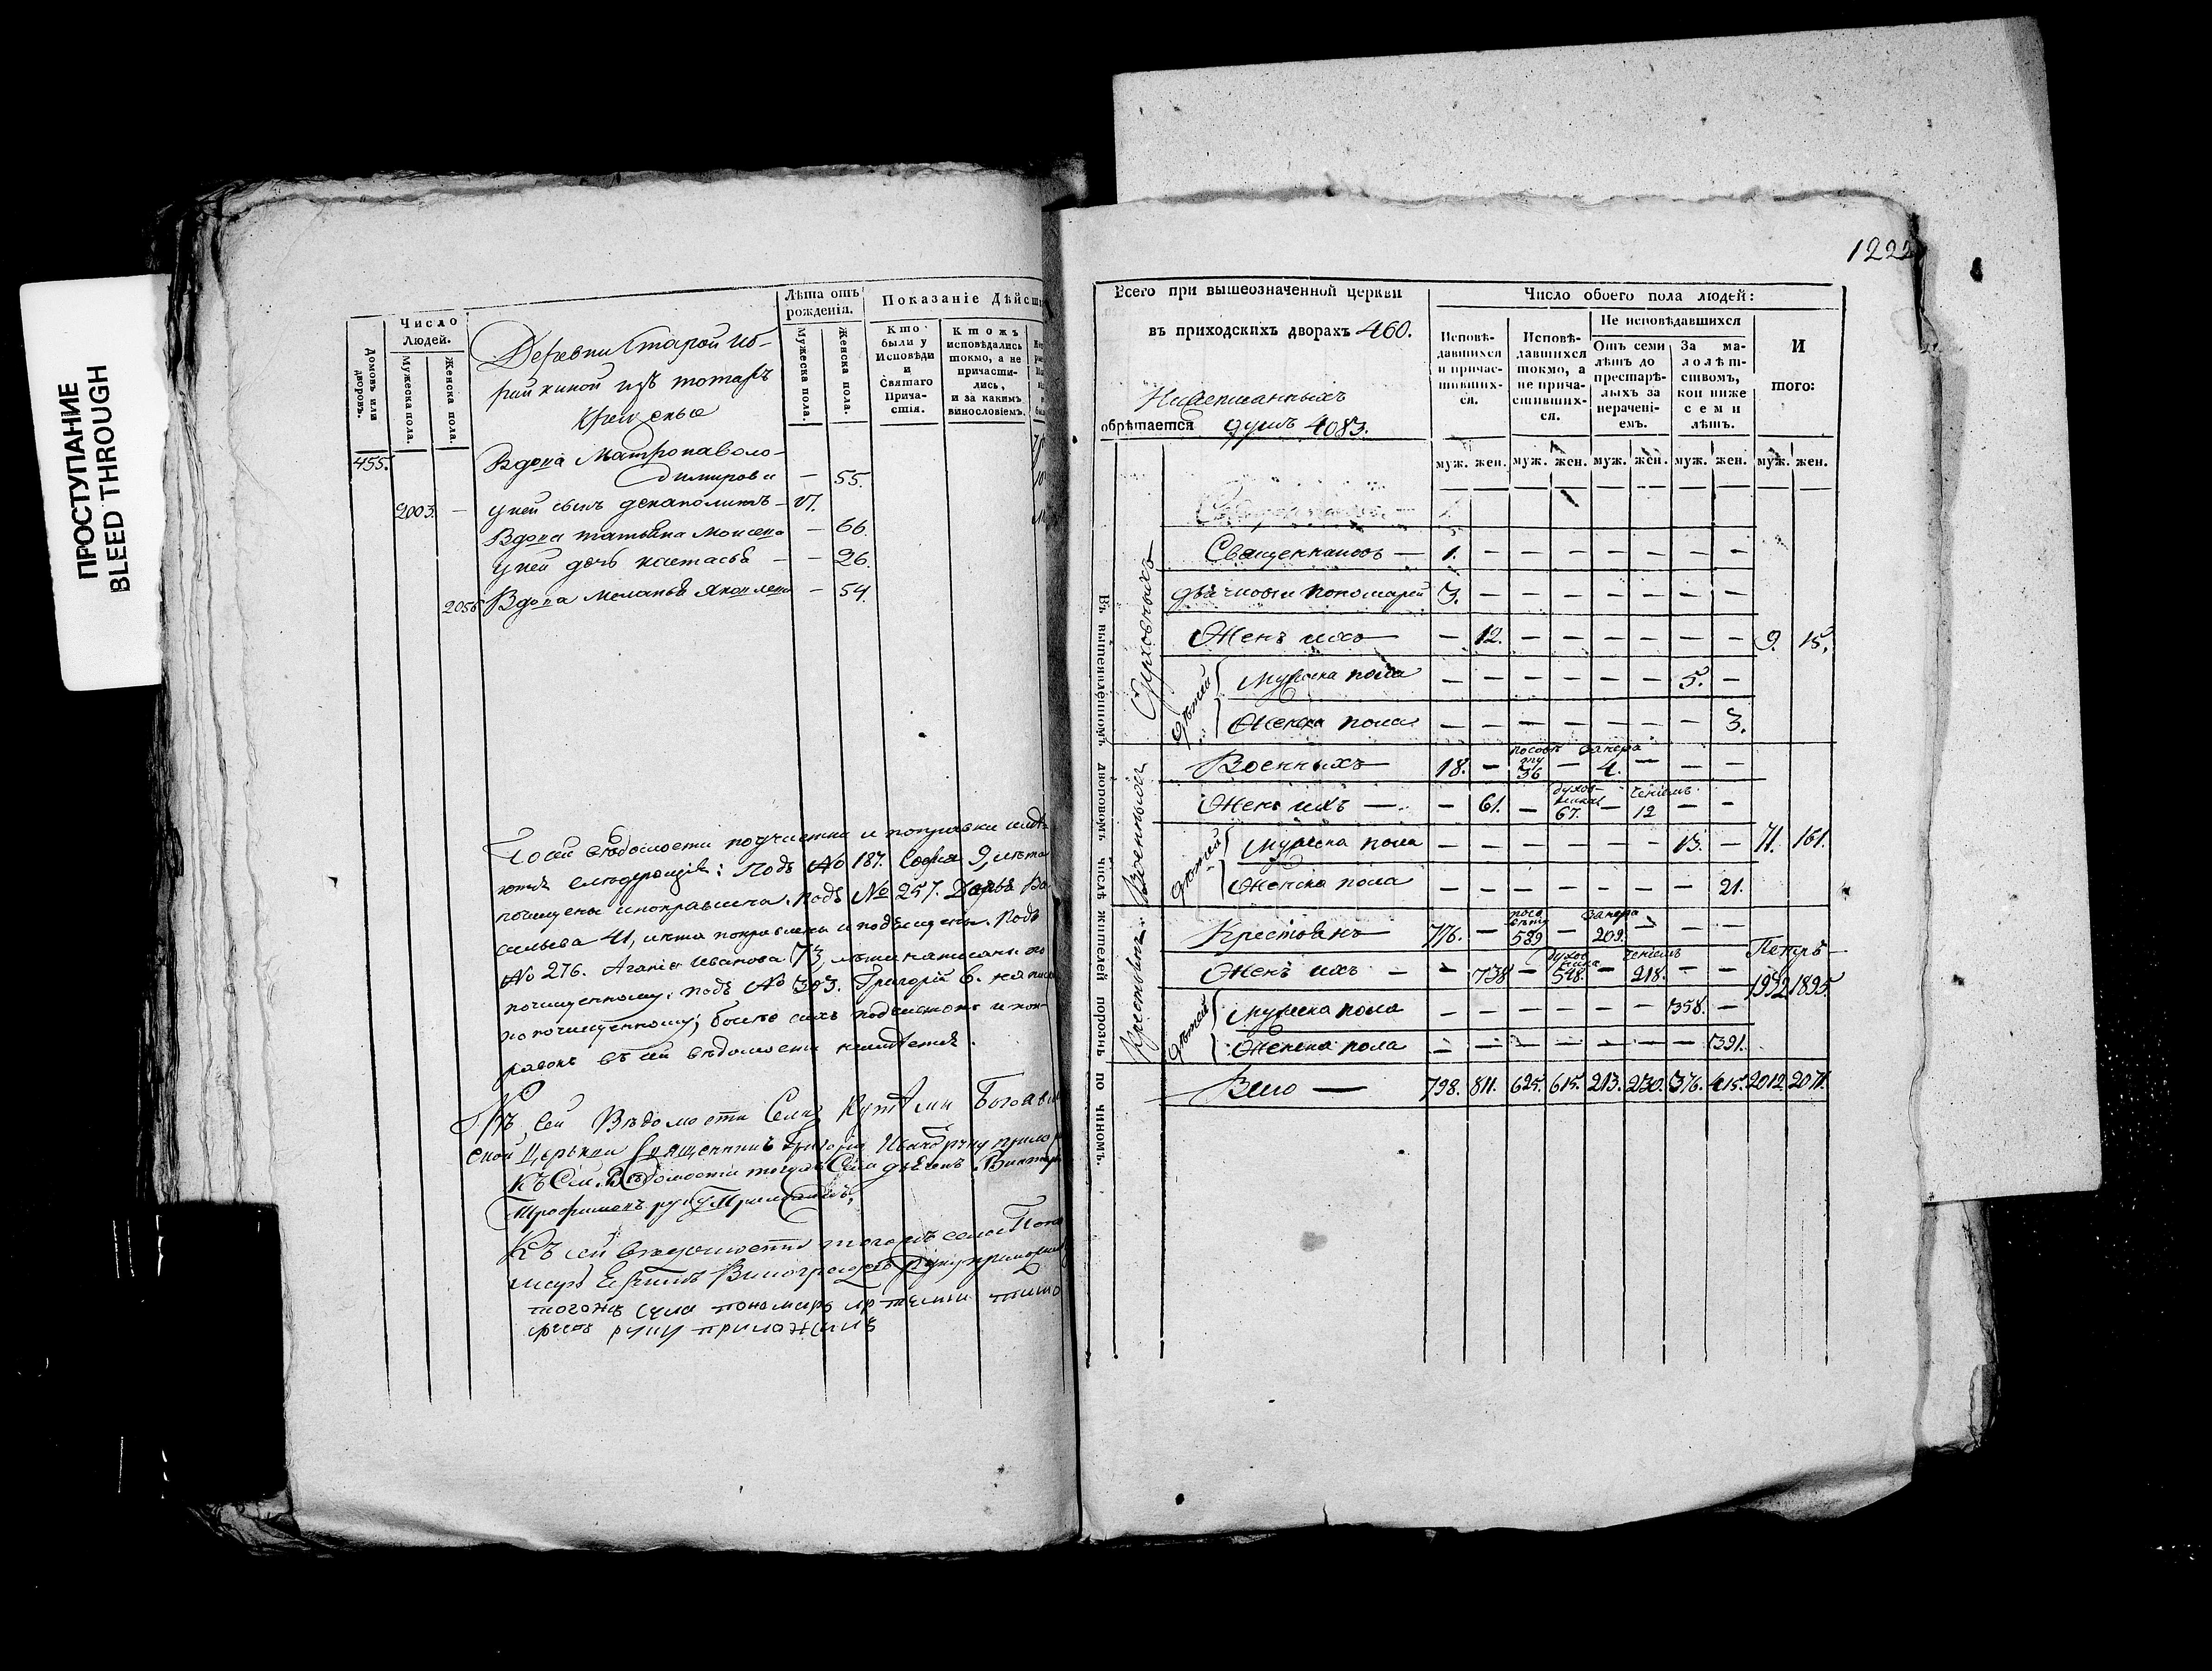 ПРОСТУПАНИЕ
BLEED THROUGH
Домовъ или дворовъ.
Число Людей.
Мужеска пола.
Женска пола.
Деревни Старой
из татаръ
Крещеные
Лѣта отъ рожденія.
Мужеска пола.
Женска пола.
Показаніе Дѣйст
Кто были у Исповѣди и Святаго Причастія.
Ктожъ исповѣдались токмо, а не причастились, и за какимъ винословіемъ.
455.
Вдова Матрона Воло-
димирова — 55.
2003. — у ней сынъ — 17.
Вдова татьяна Моисева — 66.
у ней дочь настасья — — 26.
2055 Вдова Меланья Яковлева — 54.
По сей вѣдомости подчистки и поправки имѣ-
ются слѣдующія: Подъ № 187. Софья 9, лѣта
почищены и поправлена. подъ № 257. Дарья Ва-
сильева 41, лѣта поправлены и подчищены. Подъ
№ 276. Агаѳія Иванова 73, лѣта написаны по
почищенному; подъ № 303. Григорій 6. написа
по почищенному; болѣе сихъ подчистокъ и поп-
равокъ въ сей вѣдомости неимѣется.
Къ сей Вѣдомости Села Богоявлен
ской Церькви Священникъ Григорій Ивановъ руку прило
Къ Сей Вѣдомости тогожъ Села дьячекъ Викторъ
Трофимовъ руку Приложилъ,
Къ сей вѣдомости тогожъ села Поно
марь Виноградовъ руку приложилъ
тогожъ села пономарь
руку приложилъ
1222
Всего при вышеозначенной церкви
въ приходскихъ дворахъ 460.
Нижеписанныхъ
обрѣтается душъ 4083.
Число обоего пола людей:
Исповѣдавшихся и причастившихся.
Исповѣдавшихся токмо, а не причастившихся.
Не исповѣдавшихся
Отъ семи лѣтъ до престарѣлыхъ за нерачені-емъ.
За малолѣтствомъ, кои ниже семи лѣтъ.
И того:
муж. жен. муж. жен. муж. жен. муж. жен. муж. жен.
Въ вышеписанномъ дворовомъ числѣ жителей порознь по чиномъ.
Духовныхъ
Священниковъ — 1. — — — — — — —
дьячковъ и пономарей 3. — — — — — — —
Женъ ихъ — — 12. — — — — — — 9. 15.
Дѣтей
Мужеска пола — — — — — — 5. —
Женска пола — — — — — — — 3.
Военныхъ
Военныхъ — 18. — 36 — 4. — — —
Женъ ихъ — — 61. — 67. — 12 — —
Дѣтей
Мужеска пола — — — — — — 13. — 71. 161.
Женска пола — — — — — — — 21.
Крестьянъ
Крестьянъ — 776. — 589 — 209. — — —
Женъ ихъ — — 738 — 548. — 218. — —
1932. 1895.
Дѣтей
Мужеска пола — — — — — — 358. —
Женска пола — — — — — — — 391.
Всего — 798. 811. 625. 615. 213. 230. 376. 415. 2012. 2071.